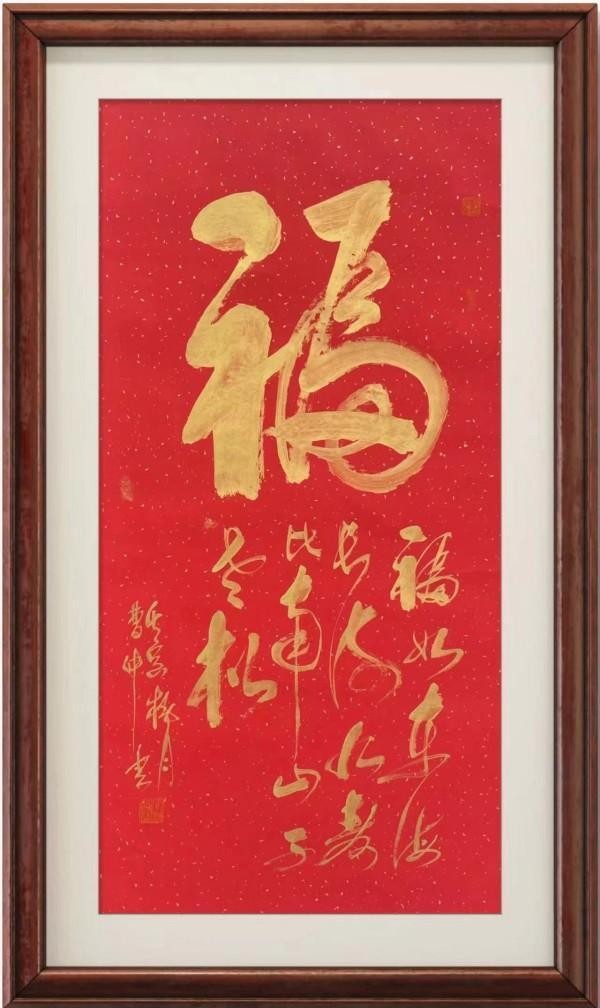 福
福如东海
长流水寿
比南山不
老松